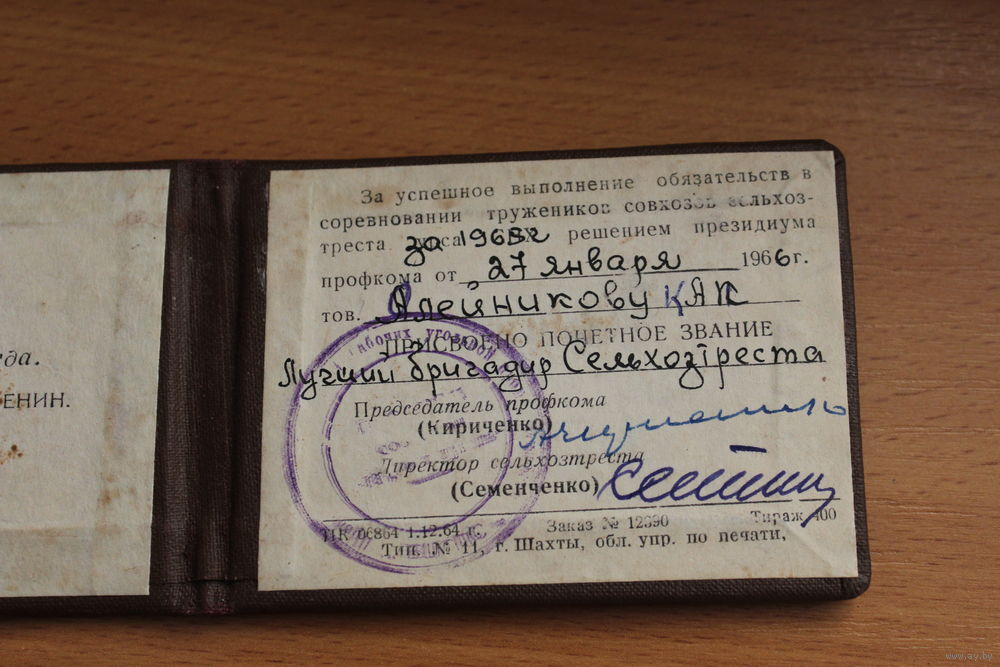 да.
ЕНИН.
За успешное выполнение обязательств в
соревновании тружеников совхозов сельхоз-
треста за решением президиума
профкома от 27 января 1966 г.
тов. Алейникову
ПРИСВОЕНО ПОЧЕТНОЕ ЗВАНИЕ
Лучший бригадир Сельхозтреста
Председатель профкома
(Кириченко)
Директор сельхозтреста
(Семенченко)
ПК 06864 1.12.64 г. Заказ № 12390 Тираж 400
Тип. № 11, г. Шахты, обл. упр. по печати,
рабочих угольной
www.ay.by